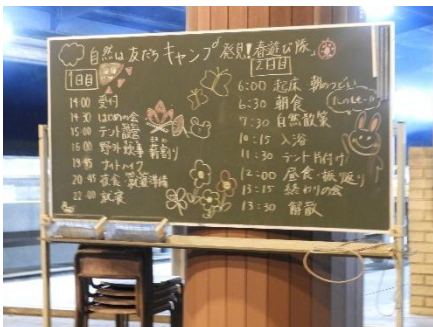 自然は友だち キャンプ 発見!春遊び隊
1日目
14:00 受付
14:30 はじめの会
15:00 テント設営
16:00 野外炊事 薪割り
19:45 ナイトハイク
20:45 夜食・就寝準備
22:00 就寝
2日目
6:00 起床 朝のつどい
6:30 朝食
7:30 自然散策
10:15 入浴
11:30 テント片付け
12:00 昼食・振り返り
13:15 終わりの会
13:30 解散